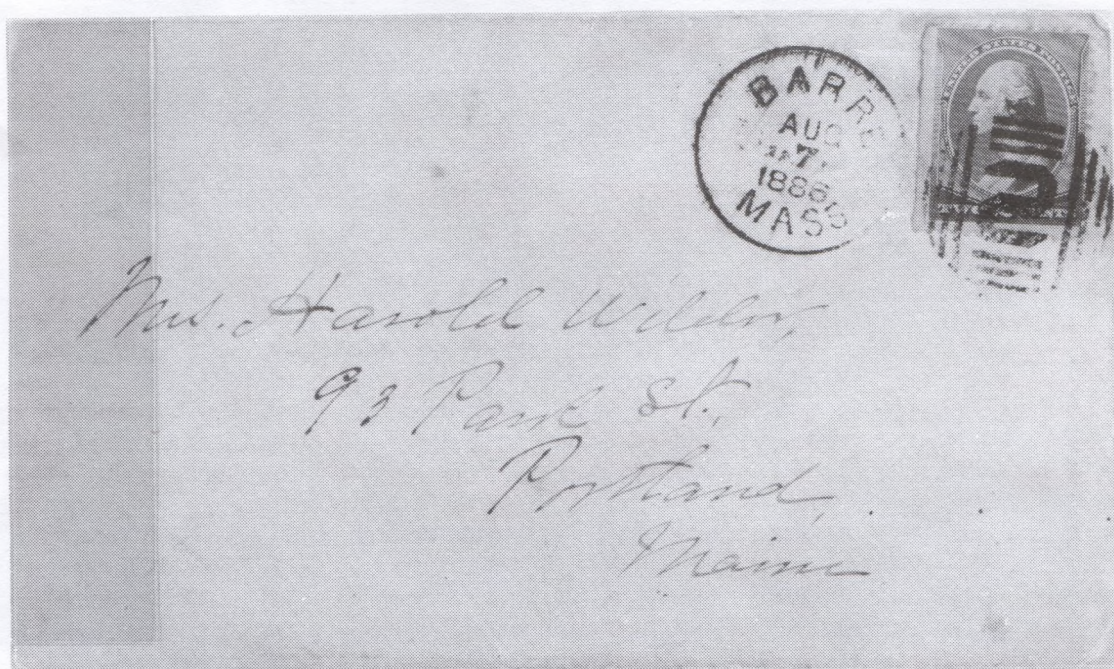 BARRE
AUG
7
1886
MASS
UNITED STATES POSTAGE
TWO CENTS
Mrs. Harold
93 Park St.,
Portland,
Maine